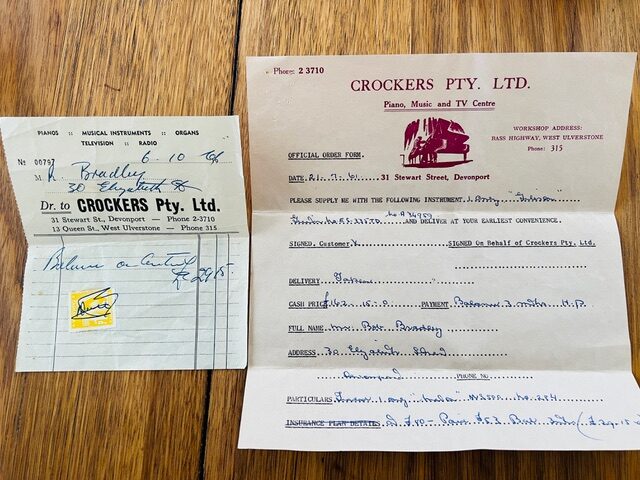 PIANOS :: MUSICAL INSTRUMENTS :: ORGANS
TELEVISION :: RADIO
No 00797 6.10
M R. Bradley
30 Elizabeth St
Dr. to CROCKERS Pty. Ltd.
31 Stewart St., Devonport — Phone 2-3710
13 Queen St., West Ulverstone — Phone 315
Balance on Contract
£29.15.
Phone: 2 3710
CROCKERS PTY. LTD.
Piano, Music and TV Centre
WORKSHOP ADDRESS:
BASS HIGHWAY, WEST ULVERSTONE
Phone: 315
OFFICIAL ORDER FORM.
DATE 21.7.61 31 Stewart Street, Devonport
PLEASE SUPPLY ME WITH THE FOLLOWING INSTRUMENT 1 Only "Gibson"
no A 34959
AND DELIVER AT YOUR EARLIEST CONVENIENCE.
SIGNED, Customer X SIGNED On Behalf of Crockers Pty. Ltd.
DELIVERY
CASH PRICE £162-15-0 PAYMENT Balance 3 mths H.P.
FULL NAME Mr. Bob Bradley
ADDRESS 30 Elizabeth Street
Devonport PHONE NO
PARTICULARS 1 only no. 284
INSURANCE PLAN DETAILS